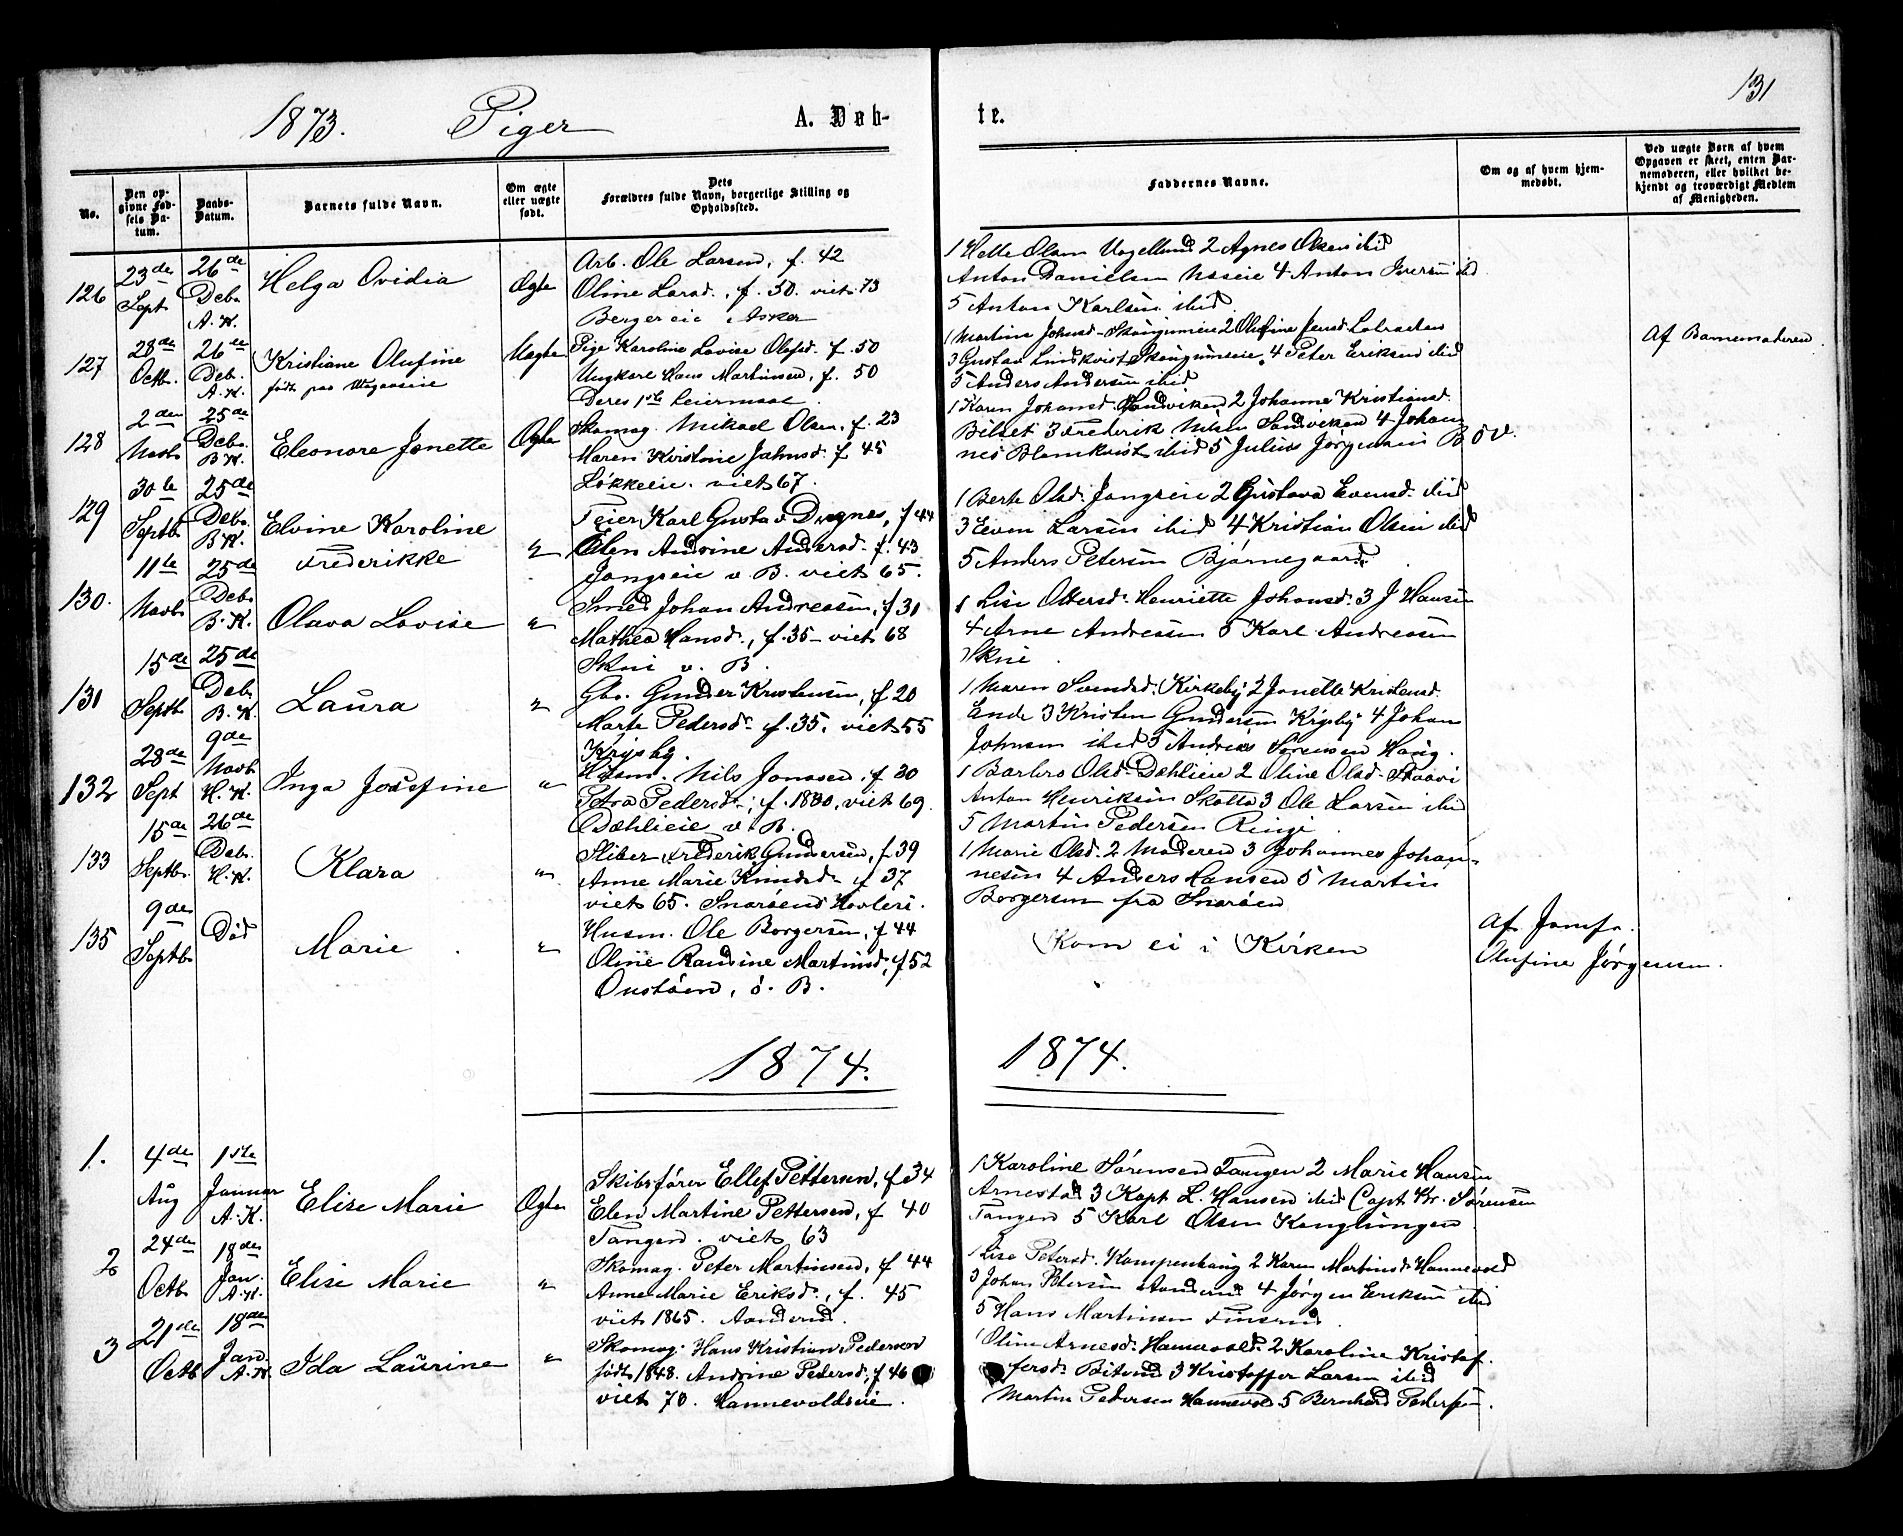 1873. Piger A. Døb-
te.
131
No.
Den op-
givne Fød-
sels Da-
tum.
Daabs-
Datum.
Barnets fulde Navn.
Om ægte
eller uægte
født.
Dets
Forældres fulde Navn, borgerlige Stilling og
Opholdssted.
Faddernes Navne.
Om og af hvem hjem-
medøbt.
Ved uægte Børn af hvem
Opgaven er skeet, enten Bar-
nemoderen, eller hvilket be-
kjendt og troværdigt Medlem
af Menigheden.
126
23de
Sept
26de
Debr
A. K.
Helga Ovidia
Ægte
Arb. Ole Larsen, f. 42
Oline Larsd., f. 50. viet 73
Bergereie i Asker
1 Helle Olsen 2 Agnes Olsen ibid
Anton Danielsen Næseie 4 Anton Iversen ibid
5 Anton Karlsen ibid.
127
28de
Octbr.
26de
Debr.
A. K.
Kristiane Olufine
født paa
Uægte
Pige Karoline Lovise Olafsd. f. 50
Ungkarl Hans Martinsen, f. 50
Deres 1ste Leiermaal.
1 Martine Johnsd. 2 Olufine Jensd.
3 Gustav Lindkvist 4 Peter Eriksen ibid
5 Anders Andersen ibid
Af Barnemoderen.
128
2den
Novbr
25de
Debr.
B. K.
Eleonore Jonette
Ægte
Skomag. Mikael Olsen, f. 23
Maren Kristine Johnsd. f 45
Løkkeie. viet 67.
1 Karen Johansd. Sandviken 2 Johanne Kristiansd.
Bilset 3 Frederik Nilsen Sandviken 4 Johan-
nes Blomkvist ibid 5 Julius Jørgensen
129
30te
Septbr.
25de
Debr.
B. K.
Elvine Karoline
Frederikke
"
Feier Karl Gustav Dregnes, f 44
Elen Andrine Andersd. f. 43
Jongseie v. B. viet 65.
1 Berte Olsd. Jongseie 2 Gustava Evensd. ibid
3 Even Larsen ibid 4 Kristian Olsen ibid
5 Anders Petersen Bjørnegaard.
130.
11te
Novbr
25de
Debr
B. K.
Olava Lovise
"
Smed Johan Andreasen, f 31
Mathea Hansd., f. 35 - viet 68
Skui v. B.
1 Lise Ottersd. Henriette Johansd. 3 J Hansen
4 Arne Andreasen 5 Karl Andreasen
Skui.
131
15de
Septbr
25de
Debr
B. K.
Laura
"
Gbr. Gunder Kristensen, f 20
Marte Pedersd. f. 35. viet 55
Krysby.
1 Maren Svendsd. Kirkeby 2 Jonette Kristensd.
Ende 3 Kristen Gundersen Krysby 4 Johan
Johnsen ibid 5 Andreas Sørensen Haug.
132
28de
Sept
9de
Novbr
H. K.
Inga Josefine
"
Husm. Nils Jonasen. f 30
Petra Pedersd., f. 1830, viet 69.
Dæhlieie v. B.
1 Barbro Olsd. Dæhlieie 2 Oline Olsd.
Anton Henriksen Skotta 3 Ole Larsen ibid
5 Martin Pedersen Ringi.
133
15de
Septbr.
26de
Debr.
H. K.
Klara
"
Sliber Frederik Gundersen, f. 39
Anne Marie Knudsd. f 37
viet 65. Snarøens Høvleri.
1 Marie Olsd. 2 Moderen 3 Johannes Johan-
nesen 4 Anders Hansen 5 Martin
Borgersen fra Snarøen
135
9de
Septbr.
Død
Marie
"
Husm. Ole Borgersen, f 44
Oline Randine Martinsd, f 52
Oustøen, ø. B.
Kom ei i Kirken
Af Jomfr.
Olufine Jørgensen.
1874.
1874.
1.
4de
Aug
1ste
Januar
A. K.
Elise Marie
Ægte
Skibsfører Ellef Pettersen, f 34
Elen Martine Pettersen, f 40
Tangen. viet 63
1 Karoline Sørensen Tangen 2 Marie Hansen
Arnestad 3 Kapt L. Hansen ibid Capt Kr. Sørensen
Tangen 5 Karl Olsen Konglungen
2
24de
Octbr
18de
Jan.
A. K.
Elise Marie
"
Skomag. Peter Martinsen, f 44
Anne Marie Eriksd., f. 45
viet 1865. Aanderud.
1 Lise Petersd. Kampenhaug 2 Karen Martinsd. Hannevold
3 Johan Petersen Aanderud 4 Jørgen Eriksen ibid
5 Hans Martinsen Finsrud.
3
21de
Octbr
18de
Jan.
A. K.
Ida Laurine
"
Skomag. Hans Kristian Pedersen
født 1848. Andrine Pedersd., f 46
viet 70. Hannevoldseie.
1 Oline Arnesd. Hannevold. 2 Karoline Kristof-
fersd. Bitrud 3 Kristoffer Larsen ibid
Martin Pedersen Hannevold 5 Bernhard Pedersen.